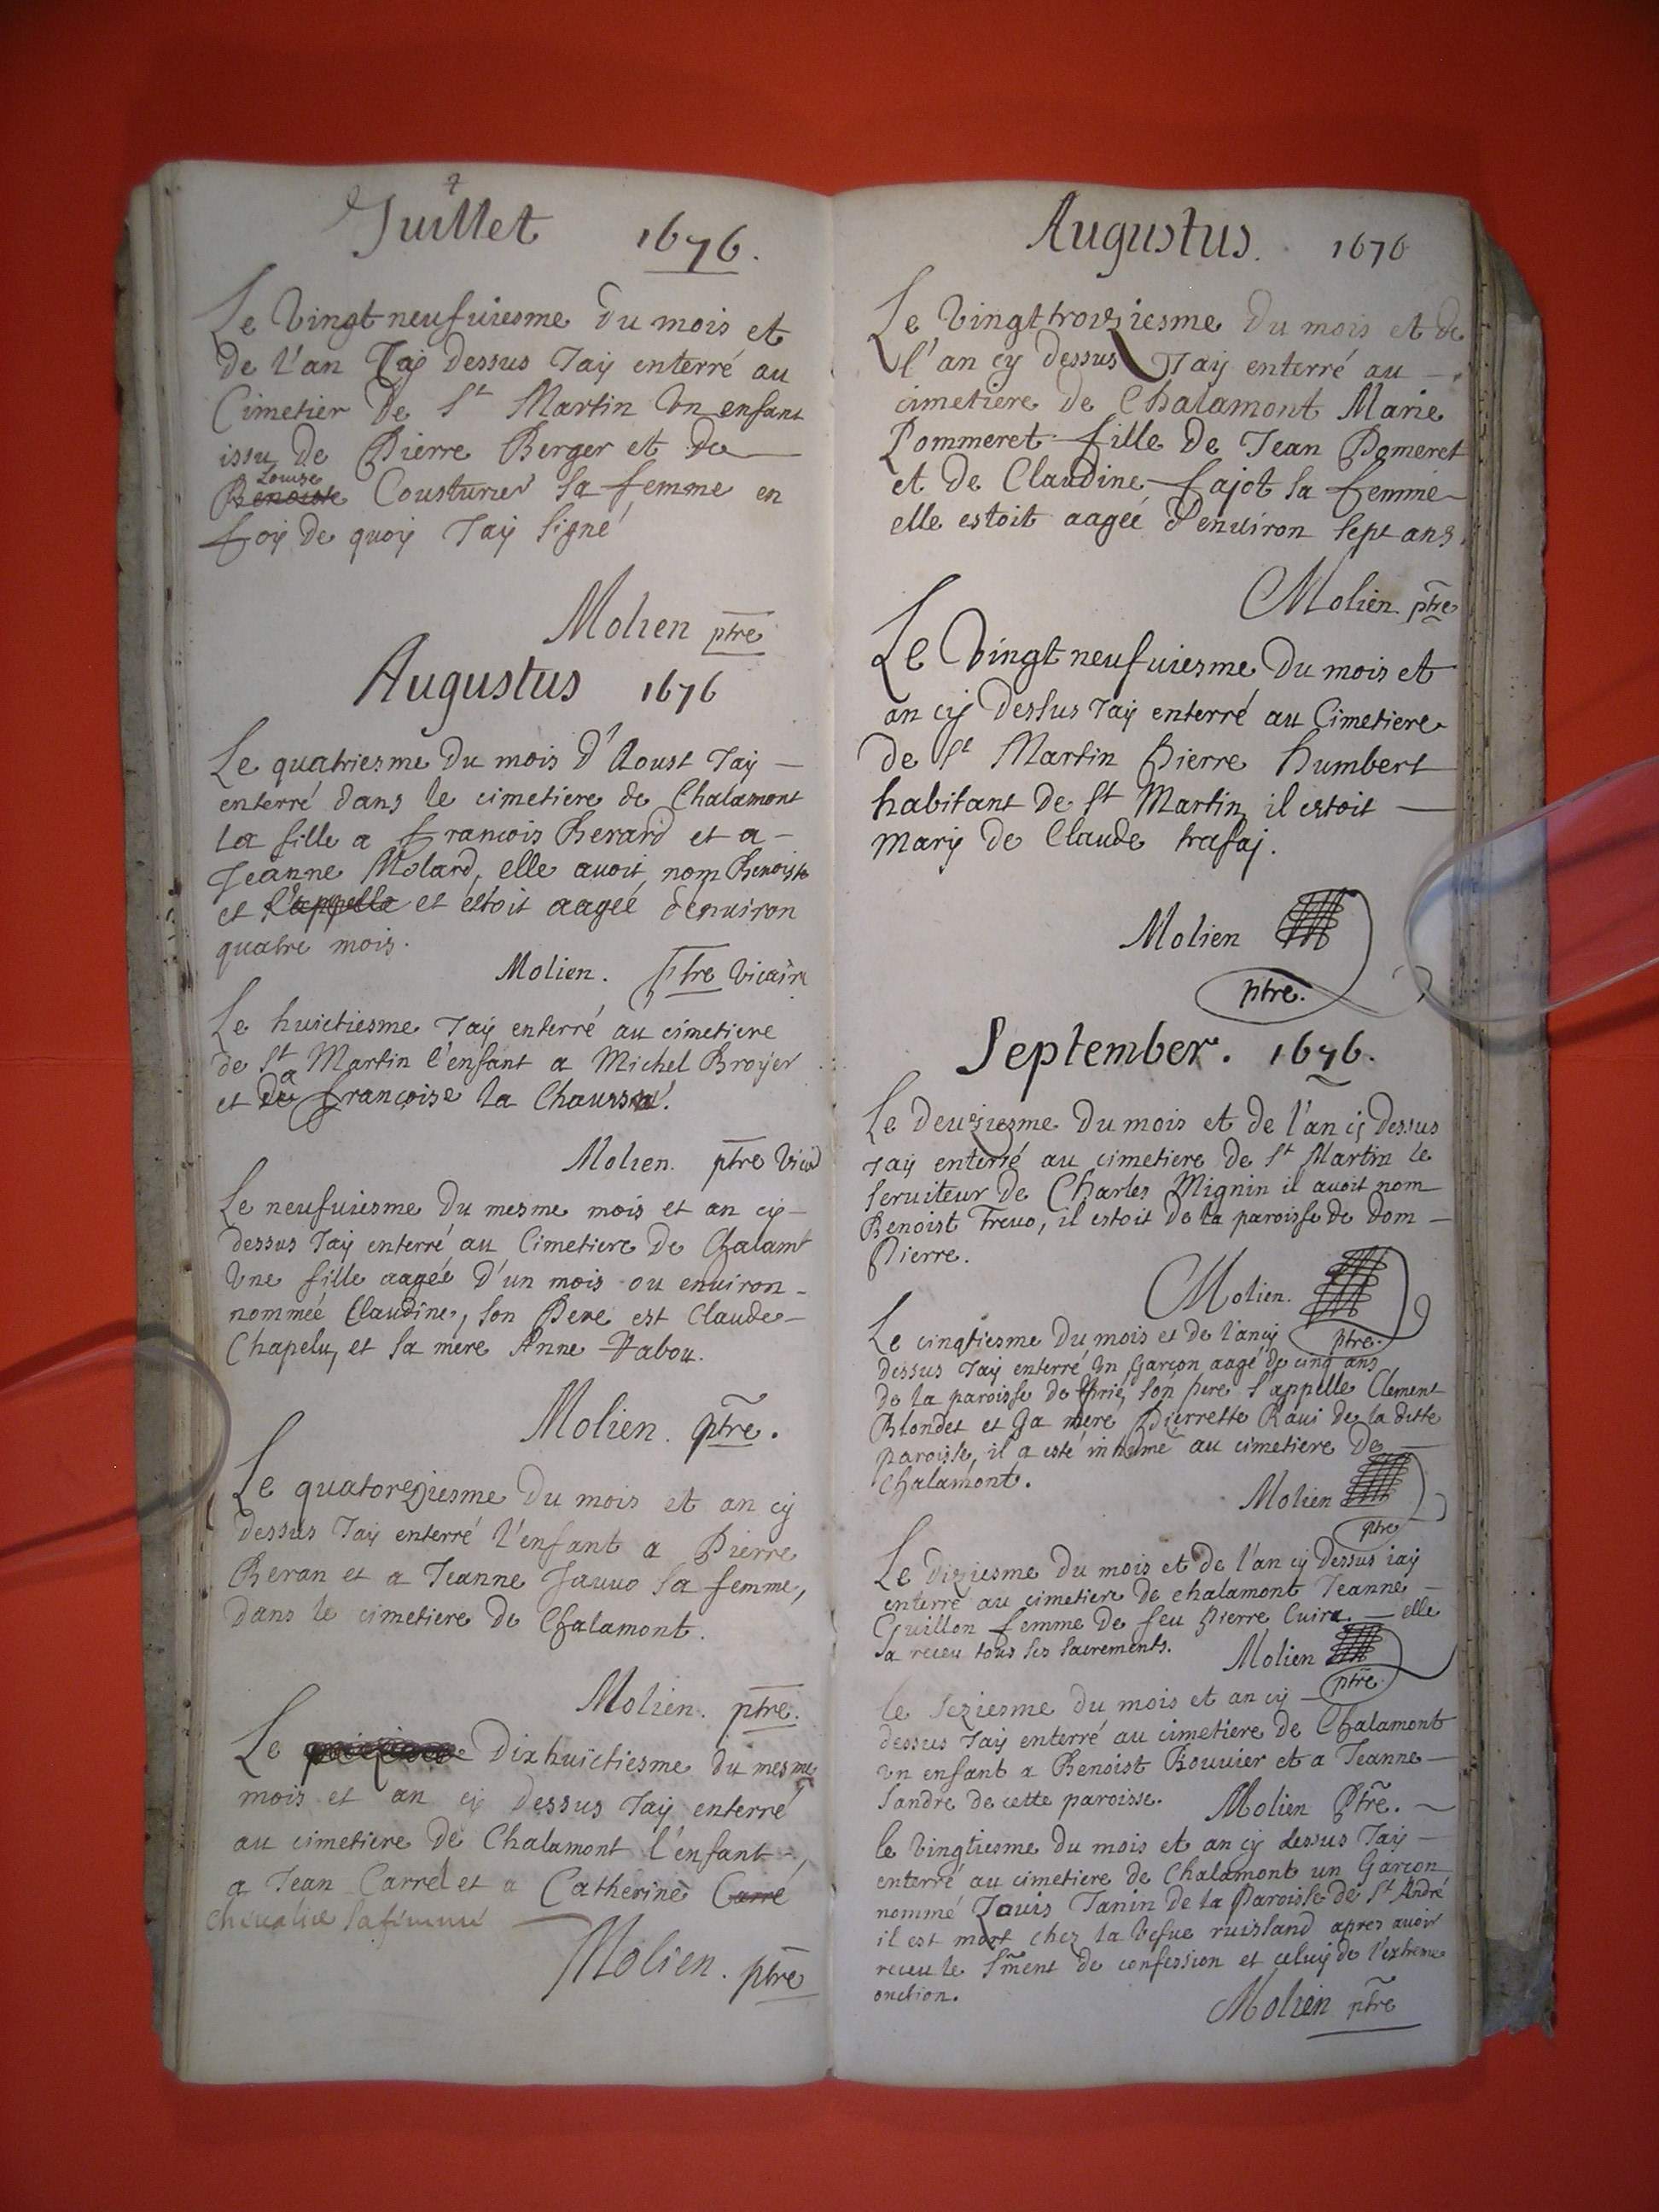 Juillet 1676.
Le Vingt neufuiesme Du mois et
De l'an Cy Dessus Jaÿ enterré au
Cimetier De St Martin Vn enfant
issu De Pierre Berger et De
Louise
Benoiste Cousturier Sa femme en
foÿ De quoÿ Jaÿ Signé
Molien ptre
Augustus 1676
Le quatriesme Du mois D'Aoust Jaÿ
enterré dans le cimetiere de Chalamont
La fille a francois Berard et a
Jeanne Molard, elle avoit nom Benoiste
et l'appelle et estoit aagée denuiron
quatre mois.
Molien. ptre Vicaire
Le huictiesme Jaÿ enterré au cimetiere
de St Martin l'enfant a Michel Broyer
et a françoise la Chaussé.
Molien. ptre
Le neufuiesme Du mesme mois et an cÿ
dessus Jaÿ enterré au Cimetiere De Chalamt
Vne fille aagée D'un mois ou enuiron
nommée Claudine, Son Pere est Claude
Chapelu, et Sa mere Anne Tabou.
Molien. ptre.
Le quatorziesme Du mois et an cÿ
dessus Jaÿ enterré l'enfant a Pierre
Beran et a Jeanne Jauuo Sa femme,
dans le cimetiere De Chalamont.
Molien. ptre.
Le Dixhuictiesme Du mesme
mois et an cÿ Dessus Jaÿ enterré
au cimetiere De Chalamont l'enfant
a Jean Carrel et a Catherine Carré
cheualie Sa femme
Molien. ptre
Augustus. 1676
Le Vingt troisiesme Du mois et de
l'an cÿ dessus Jaÿ enterré au
cimetiere De Chalamont Marie
Pommeret fille De Jean Pomeret
et De Claudine fajot Sa femme
elle estoit aagée D'enuiron Sept ans.
Molien. ptre
Le Vingt neufuiesme Du mois et
an cÿ Dessus Jaÿ enterré au Cimetiere
De St Martin Pierre humbert
habitant De St Martin il estoit
Marÿ De Claude trafaj.
Molien
ptre.
September. 1676.
Le Deuziesme Du mois et de l'an cÿ Dessus
Jaÿ enterré au cimetiere De St Martin le
Seruiteur De Charles Mignin il auoit nom
Benoist Treuo, il estoit De la paroisse De Dom
Pierre.
Molien.
ptre.
Le cinqtiesme Du mois et de l'an cÿ
dessus Jaÿ enterré Vn Garçon aagé De cinq ans
De la paroisse De son pere S'appelle Clement
Blondet et Sa mere Pierrette Raui De la ditte
paroisse, il a esté inhumé au cimetiere De
Chalamont.
Molien
ptre
Le Diziesme Du mois et De l'an cÿ Dessus iaÿ
enterré au cimetiere De chalamont Jeanne
Guillon femme De feu Pierre Cuire elle
a receu tous ses Sacrements.
Molien
ptre.
le Seziesme Du mois et an cÿ
dessus Jaÿ enterré au cimetiere De Chalamont
Vn enfant a Benoist Bouuier et a Jeanne
Sandre De cette paroisse. Molien Ptre.
le Vingtiesme du mois et an cÿ dessus Jaÿ
enterré au cimetiere de Chalamont un Garçon
nommé Louis Janin De la Paroisse De St André
il est mort chez la Vefue ruisland apres avoir
receu le Sment De confession et celuÿ De l'extreme
onction.
Molien ptre